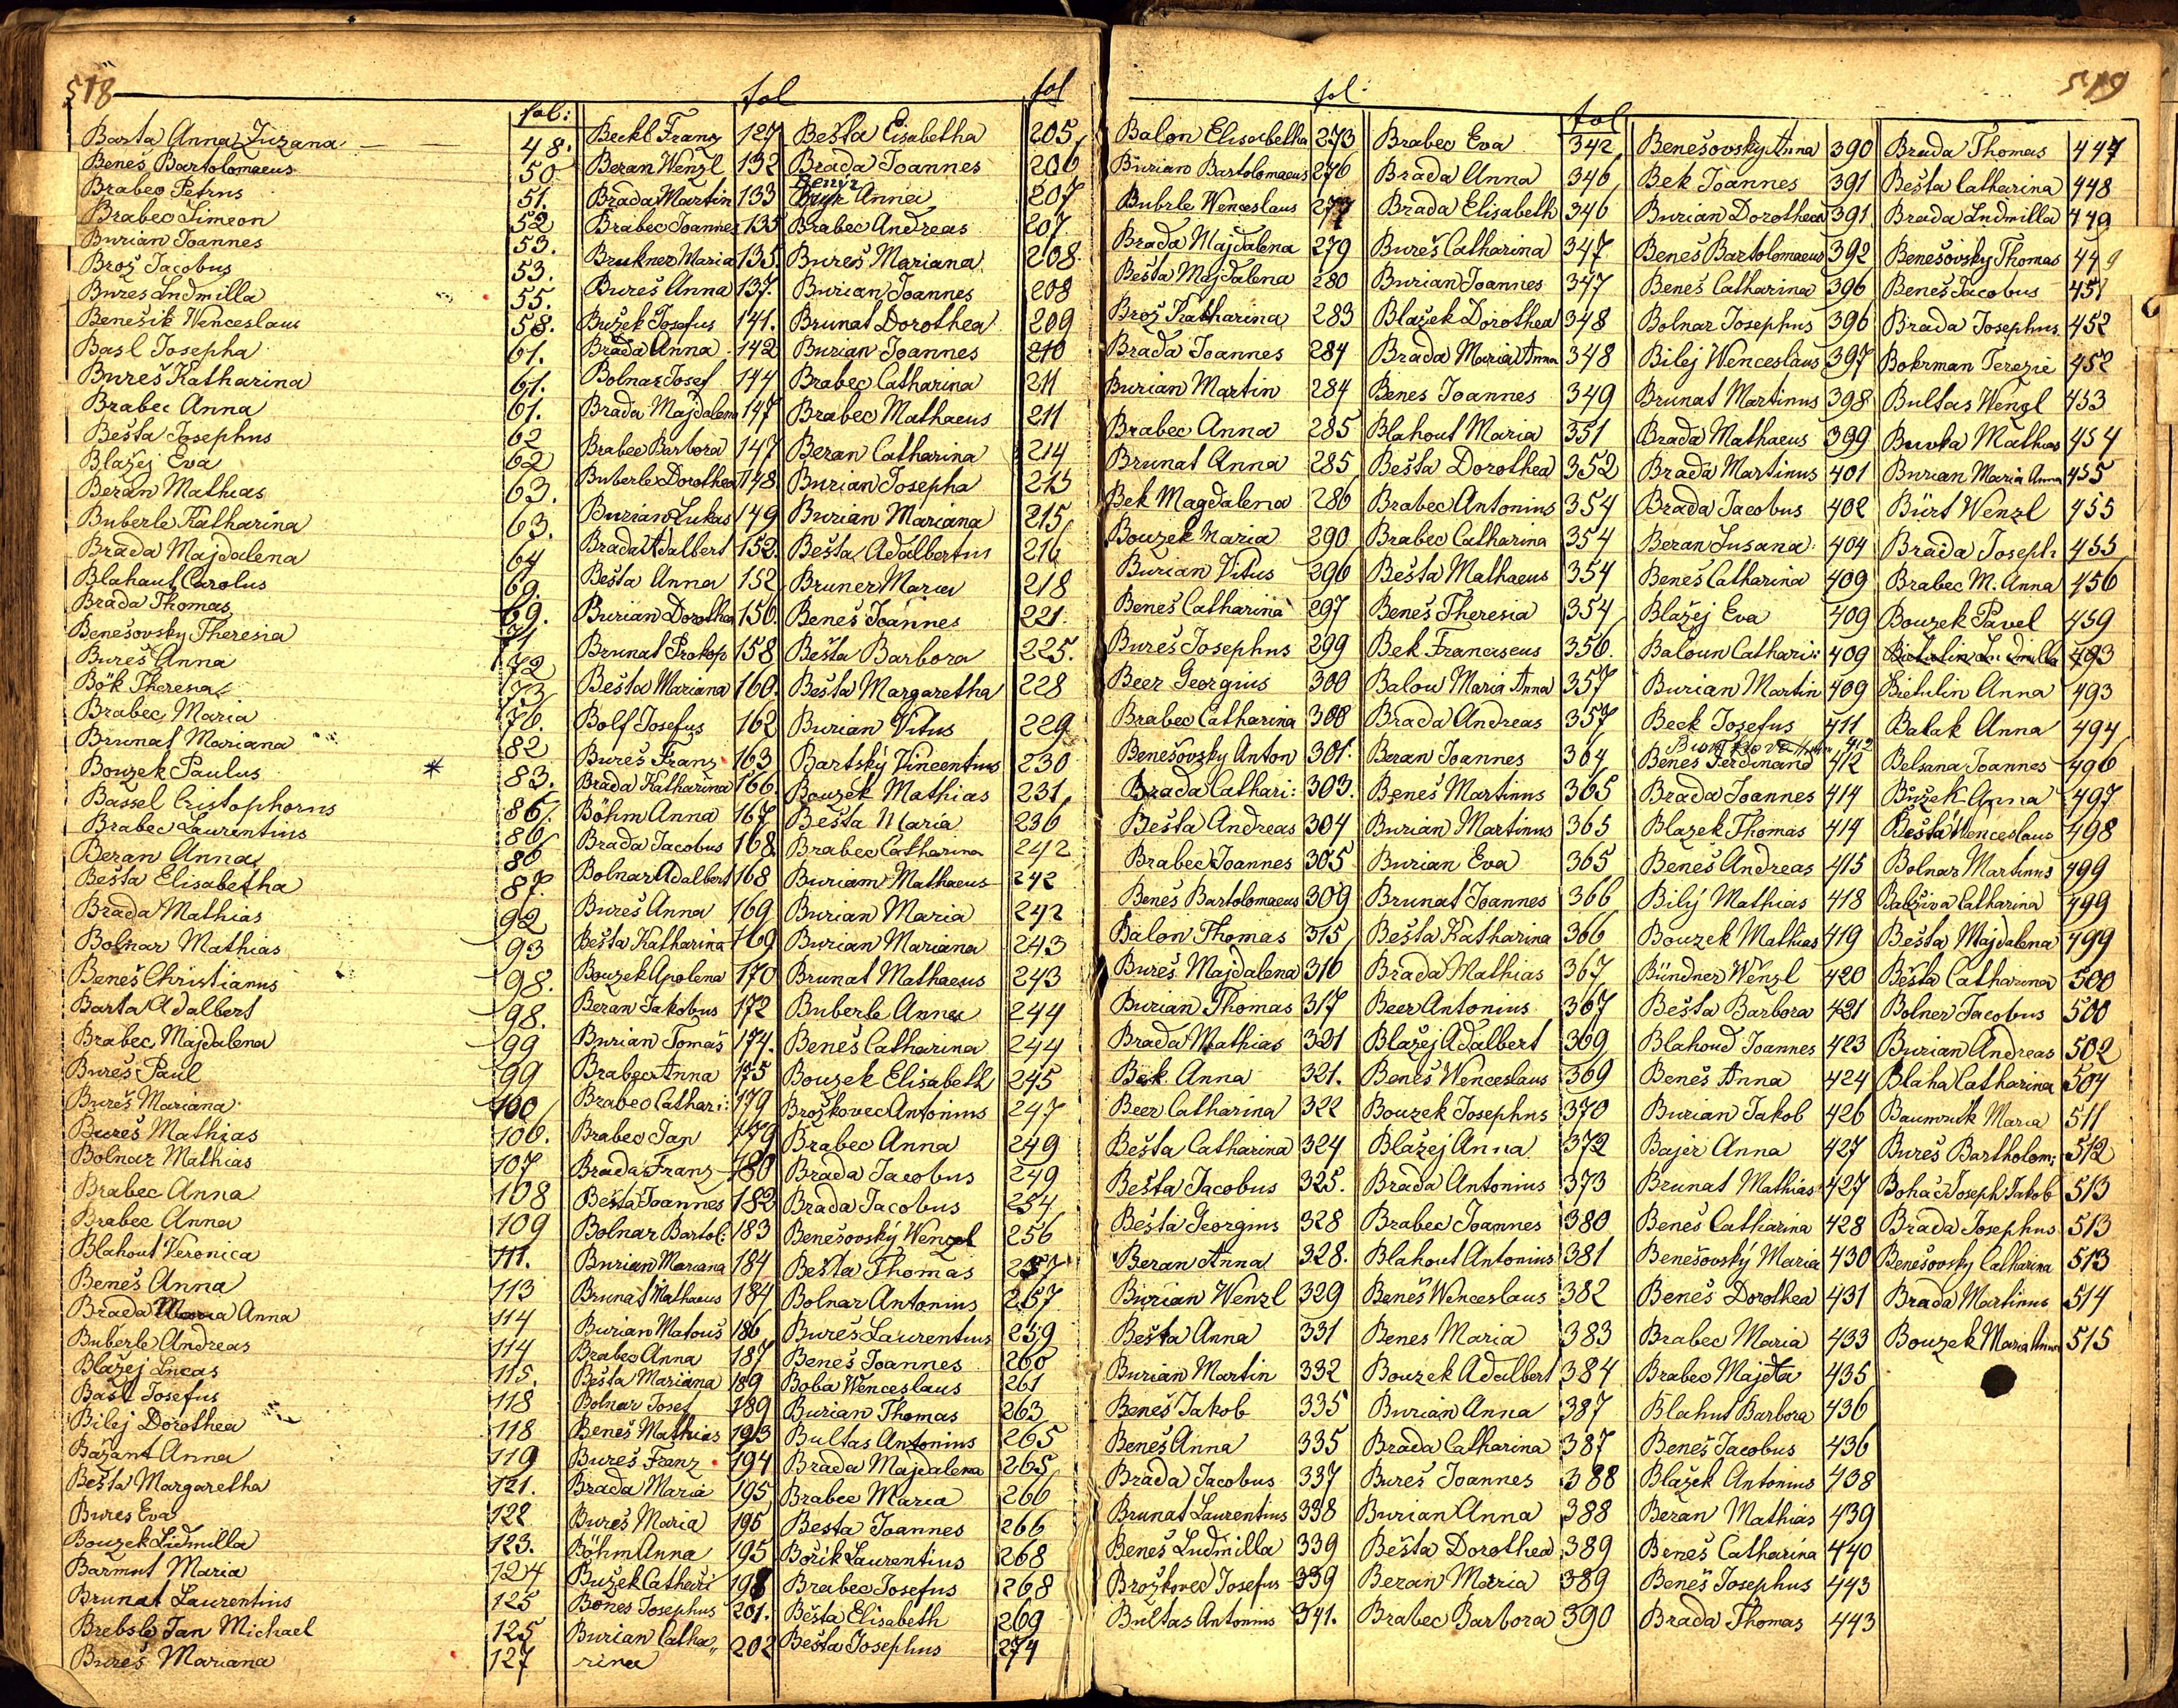 518
fol:
Barta Anna Zuzana 48.
Beneš Bartolomaeus 50
Brabec Petrus 51.
Brabec Simeon 52
Burian Joannes 53.
Brož Jacobus 53.
Bureš Ludmilla 55.
Benešik Wenceslaus 58.
Basl Josepha 61.
Bureš Katharina 61.
Brabec Anna 61.
Bešta Josephus 62
Blažej Eva 62
Beran Mathias 63.
Buberle Katharina 63.
Brada Majdalena 64
Blahaut Carolus 69.
Brada Thomas 69.
Benešovsky Theresia 71
Bureš Anna 72
Bök Theresia 73
Brabec Maria 76.
Brunat Mariana 82
Bouzek Paulus 83.
Bassel Cristophorus 86.
Brabec Laurentius 86
Beran Anna 86
Bešta Elisabetha 87.
Brada Mathias 92
Bolnar Mathias 93
Beneš Christianus 98.
Barta Adalbert 98.
Brabec Majdalena 99
Bureš Paul 99
Bureš Mariana 100
Bureš Mathias 106.
Bolnar Mathias 107
Brabec Anna 108
Brabec Anna 109
Blahout Veronica 111.
Beneš Anna 113
Brada Maria Anna 114
Buberle Andreas 114
Blažej Lucas 115.
Basl Josefus 118
Bilej Dorothea 118
Bažant Anna 119
Bešta Margaretha 121.
Bures Eva 122
Bouzek Lidmilla 123.
Barmut Maria 124
Brunat Laurentius 125
Brebsle Jan Michael 125
Bureš Mariana 127
fol
Beckl Franz 127
Beran Wenzl 132
Brada Martin 133
Brabec Joannes 135
Brukner Maria 135.
Bureš Anna 137.
Bužek Josefus 141.
Brada Anna 142
Bolnar Josef 144
Brada Majdalena 147
Brabec Barbora 147
Buberle Dorothea 148.
Burian Lukas 149
Brada Adalbert 152.
Bešta Anna 152
Burian Dorothea 156.
Brunat Prokop 158
Bešta Mariana 160.
Bolf Josefus 162
Bureš Franz 163
Brada Katharina 166.
Böhm Anna 167
Brada Jacobus 168.
Bolnar Adalbert 168
Bureš Anna 169
Bešta Katharina 169
Bouzek Apolena 170
Beran Jakobus 172
Burian Tomaš 174.
Brabec Anna 175
Brabec Cathari: 179
Brabec Jan 179
Brada Franz 180
Bešta Joannes 182
Bolnar Bartol: 183
Burian Mariana 184
Brunat Mathaeus 184
Burian Matouš 186
Brabec Anna 187
Bešta Mariana 189
Bolnar Josef 189
Beneš Mathias 193
Bureš Franz 194
Brada Maria 195
Bureš Maria 195
Böhm Anna 195
Bužek Cathari 198
Bones Josephus 201.
Burian Catha„
rina 202
fol
Bešta Elisabetha 205
Brada Joannes 206
Anna 207
Brabec Andreas 207.
Bureš Mariana 208.
Burian Joannes 208
Brunat Dorothea 209
Burian Joannes 210
Brabec Catharina 211
Brabec Mathaeus 211
Beran Catharina 214
Burian Josepha 215
Burian Mariana 215
Bešta Adalbertus 216
Bruner Maria 218
Beneš Joannes 221.
Bešta Barbora 225.
Bešta Margaretha 228
Burian Vitus 229
Bartský Vincentius 230
Bouzek Mathias 231
Bešta Maria 236
Brabec Catharina 242
Buriam Mathaeus 242
Burian Maria 242
Burian Mariana 243
Brunat Mathaeus 243
Buberle Anna 244
Beneš Catharina 244
Bouzek Elisabeth 245
Brožkovec Antonius 247
Brabec Anna 249
Brada Jacobus 249
Brada Jacobus 254
Benešovský Wenzel 256
Bešta Thomas 257
Bolnar Antonius 257
Bureš Laurentius 259
Beneš Joannes 260
Boba Wenceslaus 261
Burian Thomas 263
Bultas Antonius 265
Brada Majdalena 265
Brabec Maria 266
Besta Joannes 266
Bořik Laurentius 268
Brabec Josefus 268
Bešta Elisabeth 269
Bešta Josephus 274
519
fol:
Balon Elisabetha 273
Burian Bartolomaeus 276
Bubrle Wenceslaus 277
Brada Majdalena 279
Bešta Majdalena 280
Brož Katharina 283
Brada Joannes 284
Burian Martin 284
Brabec Anna 285
Brunat Anna 285
Bek Magdalena 286
Bouzek Maria 290
Burian Vitus 296
Beneš Catharina 297
Bureš Josephus 299
Beer Georgius 300
Brabec Catharina 300
Benešovsky Anton 301.
Brada Cathari: 303.
Bešta Andreas 304
Brabec Joannes 305
Beneš Bartolomaeus 309
Balon Thomas 315
Bureš Majdalena 316
Burian Thomas 317
Brada Mathias 321
Bek Anna 321.
Beer Catharina 322
Bešta Catharina 324
Bešta Jacobus 325.
Bešta Georgius 328
Beran Anna 328.
Burian Wenzl 329
Bešta Anna 331
Burian Martin 332
Beneš Jakob 335
Beneš Anna 335
Brada Jacobus 337
Brunat Laurentius 338
Beneš Ludmilla 339
Brožkovec Josefus 339
Bultas Antonius 341.
fol
Brabec Eva 342
Brada Anna 346
Brada Elisabeth 346
Bureš Catharina 347
Burian Joannes 347
Blažek Dorothea 348
Brada Maria Anna 348
Benes Joannes 349
Blahout Maria 351
Bešta Dorothea 352
Brabec Antonius 354
Brabec Catharina 354
Bešta Mathaeus 354
Beneš Theresia 354
Bek Franciscus 356.
Balou Maria Anna 357
Brada Andreas 357
Beran Joannes 364
Beneš Martinus 365
Burian Martinus 365
Burian Eva 365
Brunat Joannes 366
Bešta Katharina 366
Brada Mathias 367
Beer Antonius 367
Blažej Adalbert 369
Beneš Wenceslaus 369
Bouzek Josephus 370
Blažej Anna 372
Brada Antonius 373
Brabec Joannes 380
Blahout Antonius 381
Beneš Wenceslaus 382
Benes Maria 383
Bouzek Adalbert 384
Burian Anna 387
Brada Catharina 387
Bureš Joannes 388
Burian Anna 388
Bešta Dorothea 389
Beran Maria 389
Brabec Barbora 390
Benešovsky Anna 390
Bek Joannes 391
Burian Dorothea 391
Beneš Bartolomaeus 392
Beneš Catharina 396
Bolnar Josephus 396
Bilej Wenceslaus 397
Brunat Martinus 398
Brada Mathaeus 399
Brada Martinus 401
Brada Jacobus 402
Beran Susana 404
Beneš Catharina 409
Blažej Eva 409
Baloun Cathari: 409
Burian Martin 409
Beck Josefus 411
412
Beneš Ferdinand 412
Brada Joannes 414
Blazek Thomas 414
Beneš Andreas 415
Bilý Mathias 418
Bouzek Mathias 419
Bündner Wenzl 420
Bešta Barbora 421
Blahoud Joannes 423
Beneš Anna 424
Burian Jakob 426
Bajer Anna 427
Brunat Mathias 427
Beneš Catharina 428
Benešovský Maria 430
Beneš Dorothea 431
Brabec Maria 433
Brabec Majdta 435
Blahut Barbora 436
Beneš Jacobus 436
Blažek Antonius 438
Beran Mathias 439
Beneš Catharina 440
Beneš Josephus 443
Brada Thomas 443
Brada Thomas 447
Bešta Catharina 448
Brada Ludmilla 449
Benešovsky Thomas 449
Beneš Jacobus 451
Brada Josephus 452
Bohrman Terezie 452
Bultas Wenzl 453
Mathias 454
Burian Maria Anna 455
Bürt Wenzl 455
Brada Joseph 455
Brabec M. Anna 456
Bouzek Pavel 459
Bietulin Ludmilla 493
Bietulin Anna 493
Batak Anna 494
Belsana Joannes 496
Bužek Anna 497
Bešta Wenceslaus 498
Bolnar Martinus 499
Catharina 499
Bešta Majdalena 499
Bešta Catharina 500
Bolner Jacobus 500
Burian Andreas 502
Blaha Catharina 504
Baumruk Maria 511
Bureš Bartholom: 512
Bohač Joseph Jakob 513
Brada Josephus 513
Benešovsky Catharina 513
Brada Martinus 514
Bouzek Maria Anna 515